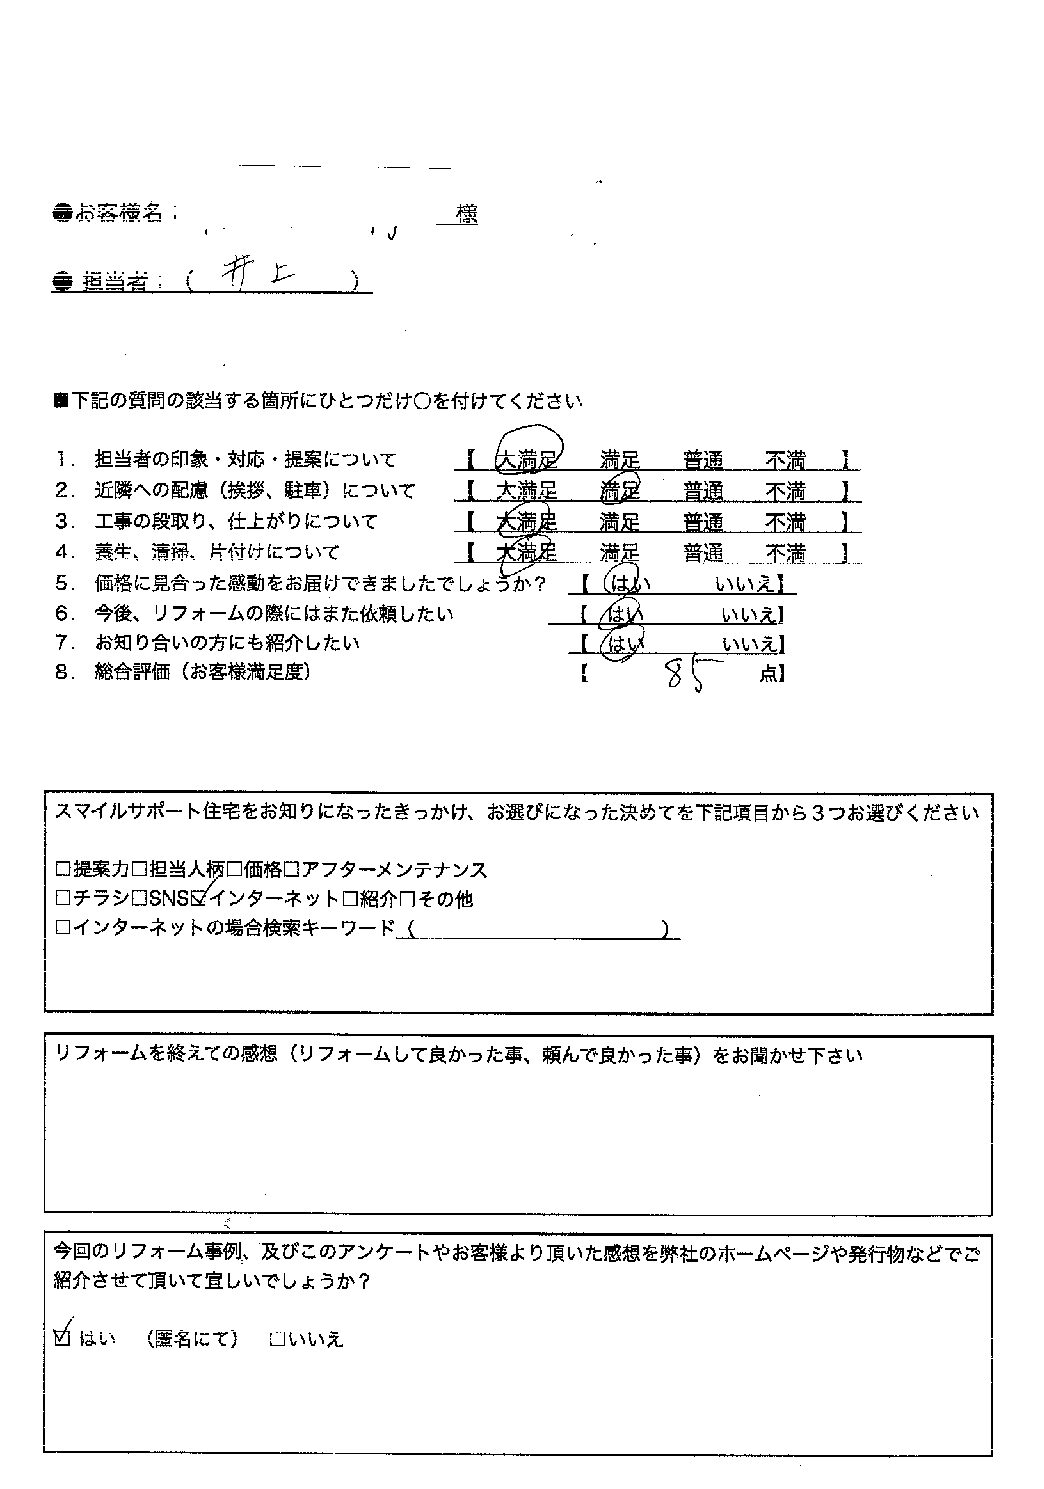 ●お客様名: 様
● 担当者:( 井上 )
■下記の質問の該当する箇所にひとつだけ〇を付けてください
1. 担当者の印象・対応・提案について 【 大満足 満足 普通 不満 】
2. 近隣への配慮(挨拶、駐車)について 【 大満足 満足 普通 不満 】
3. 工事の段取り、仕上がりについて 【 大満足 満足 普通 不満 】
4. 養生、清掃、片付けについて 【 大満足 満足 普通 不満 】
5. 価格に見合った感動をお届けできましたでしょうか? 【 はい いいえ】
6. 今後、リフォームの際にはまた依頼したい 【 はい いいえ】
7. お知り合いの方にも紹介したい 【 はい いいえ】
8. 総合評価(お客様満足度) 【 85 点】
スマイルサポート住宅をお知りになったきっかけ、お選びになった決めてを下記項目から3つお選びください
□提案力□担当人柄□価格□アフターメンテナンス
□チラシ□SNS☑インターネット□紹介□その他
□インターネットの場合検索キーワード( )
リフォームを終えての感想(リフォームして良かった事、頼んで良かった事)をお聞かせ下さい
今回のリフォーム事例、及びこのアンケートやお客様より頂いた感想を弊社のホームページや発行物などでご
紹介させて頂いて宜しいでしょうか?
☑ はい (匿名にて) □いいえ